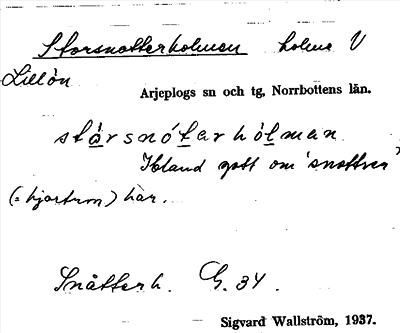 Storsnotterholmen holme V
Lillön
Arjeplogs sn och tg, Norrbottens län.
stårsnótarhólman
Ibland gott om 'snottren'
(= hjortron) här.
Snåtterh. G. 34.
Sigvard Wallström, 1937.